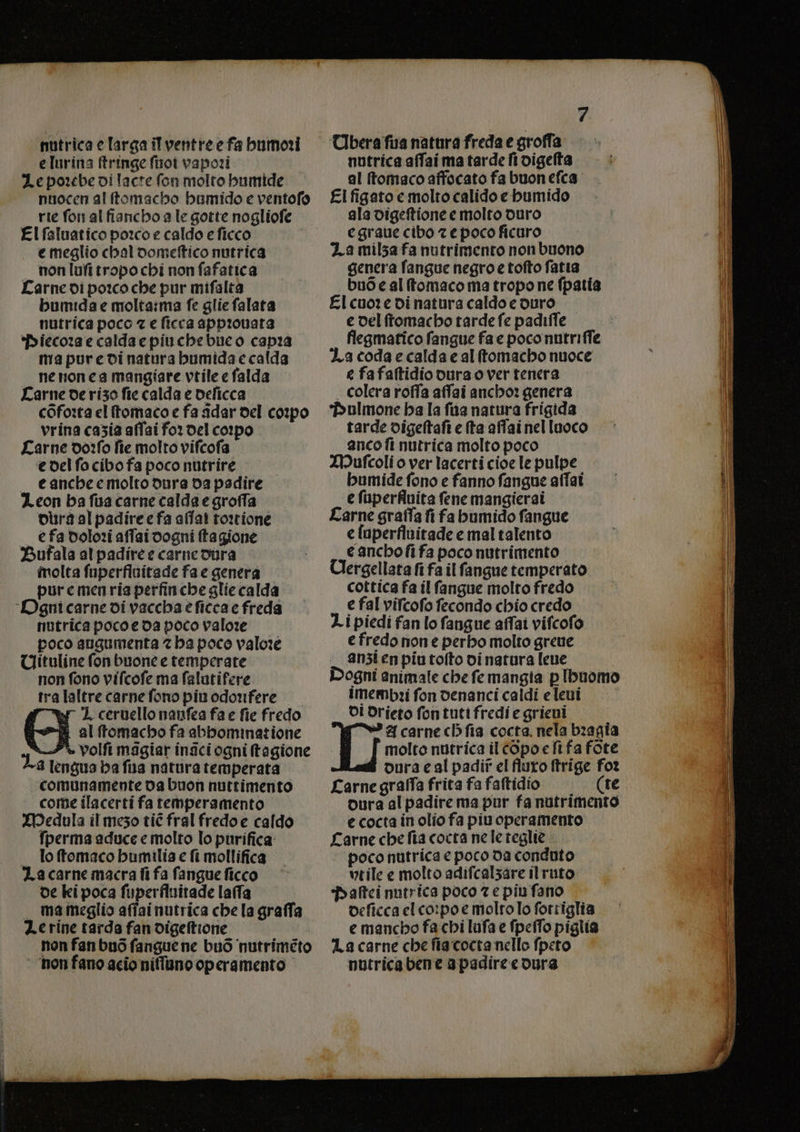 nutrica e larga il ventre e fa humoꝛi
e lurina ſtringe ſuoi vapoꝛi
Le poꝛche di lacte ſon molto humide
nuocen al ſtomacho humido e ventoſo
rie ſon al fiancho a le gotte noglioſe
El ſaluatico poꝛco e caldo e ſicco
e meglio chal domeſtico nutrica
non luſi tropo chi non ſafatica
Carne di poꝛco che pur miſalta
humida e molta:ma ſe glie ſalata
nutrica poco ⁊ e ſicca appꝛouata
Piecoꝛa e calda e piu che bue o capꝛa
ma pur e di natura humida e calda
ne non e a mangiare vtile e ſalda
Carne de rizo ſie calda e deſicca
cōfoꝛta el ſtomaco e fa ādar del coꝛpo
vrina cazia aſſai foꝛ del coꝛpo
Carne doꝛſo ſie molto viſcoſa
e del ſo cibo fa poco nutrire
e anche e molto dura da padire
Leon ha ſua carne calda e groſſa
dura al padire e fa aſſai toꝛtione
e fa doloꝛi aſſai dogni ſtagione
Bufala al padire e carne dura
molta ſuperfluitade fa e genera
pur e men ria perfin che glie calda
Ogni carne di vaccha e ſicca e freda
nutrica poco e da poco valoꝛe
poco augumenta ⁊ ha poco valoꝛe
Uituline ſon buone e temperate
non ſono viſcoſe ma ſalutifere
tra laltre carne ſono piu odoꝛifere
EL ceruello nauſea fa e ſie fredo
al ſtomacho fa abhominatione
volſi māgiar ināci ogni ſtagione
La lengua ha ſua natura temperata
comunamente da buon nutrimento
come ilacerti fa temperamento
Medula il mezo tiē fral fredo e caldo
ſperma aduce e molto lo purifica
lo ſtomaco humilia e ſi mollifica
La carne macra ſi fa ſangue ſicco
de lei poca ſuperfluitade laſſa
ma meglio aſſai nutrica che la graſſa
Le rine tarda fan digeſtione
non fan buō ſangue ne buō nutrimēto
non fano acio niſſuno operamento
7
Ubera ſua natura freda e groſſa
nutrica aſſai ma tarde ſi digeſta
al ſtomaco affocato fa buon eſca
El figato e molto calido e humido
ala digeſtione e molto duro
e graue cibo ⁊ e poco ſicuro
La milza fa nutrimento non buono
genera ſangue negro e toſto ſatia
buō e al ſtomaco ma tropo ne ſpatia
El cuoꝛ e di natura caldo e duro
e del ſtomacho tarde ſe padiſſe
flegmatico ſangue fa e poco nutriſſe
La coda e calda e al ſtomacho nuoce
e fa faſtidio dura o ver tenera
colera roſſa aſſai anchoꝛ genera
Pulmone ha la ſua natura frigida
tarde digeſtaſi e ſta aſſai nel luoco
anco ſi nutrica molto poco
Muſcoli o ver lacerti cioe le pulpe
humide ſono e fanno ſangue aſſai
e ſuperfluita ſene mangierai
Carne graſſa ſi fa humido ſangue
e ſuperfluitade e mal talento
e ancho ſi fa poco nutrimento
Uergellata ſi fa il ſangue temperato
cottica fa il ſangue molto fredo
e fal viſcoſo ſecondo chio credo
Li piedi fan lo ſangue aſſai viſcoſo
e fredo non e perho molto greue
anzi en piu toſto di natura leue
Dogni animale che ſe mangia p lhuomo
imembꝛi ſon denanci caldi e leui
di drieto ſon tuti fredi e grieui
LA carne ch ſia cocta nela bꝛagia
molto nutrica il cōpo e ſi fa fōte
dura e al padir el fluxo ſtrige foꝛ
Carne graſſa frita fa faſtidio (te
dura al padire ma pur fa nutrimento
e cocta in olio fa piu operamento
Carne che ſia cocta ne le teglie
poco nutrica e poco da conduto
vtile e molto adiſcalzare il ruto
Paſtei nutrica poco ⁊ e piu ſano
deſicca el coꝛpo e molto lo ſottiglia
e mancho fa chi luſa e ſpeſſo piglia
La carne che ſia cocta nello ſpeto
nutrica ben e a padire e dura